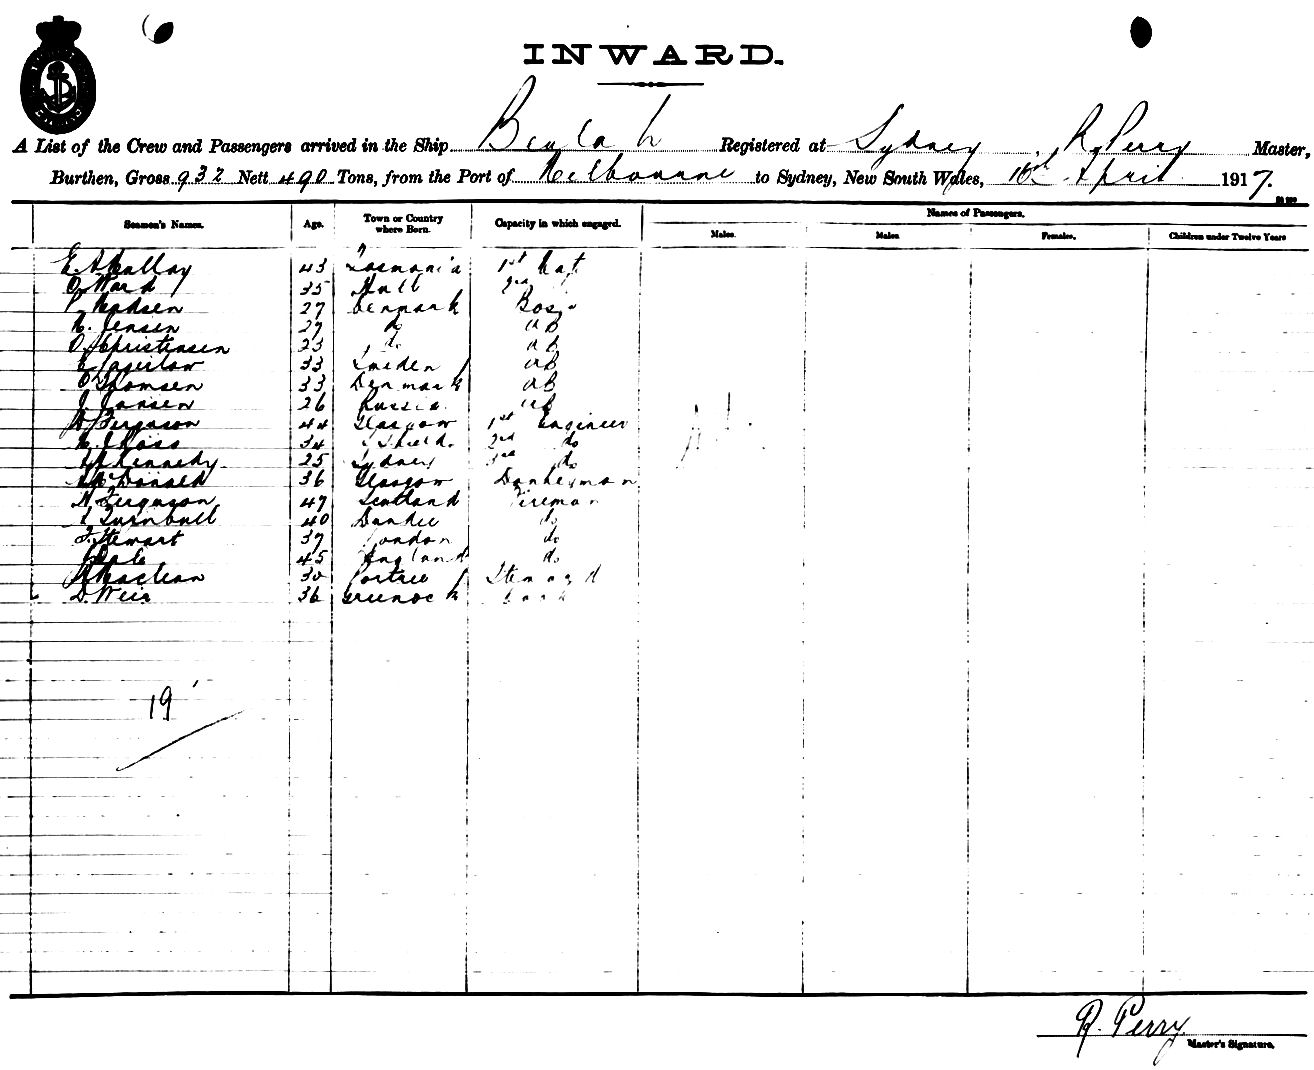 INWARD.
A List of the Crew and Passengers arrived in the Ship Beulah Registered at Sydney R. Perry Master,
Burthen, Gross 932 Nett 490 Tons, from the Port of Melbourne to Sydney, New South Wales, 16th April 1917.
Seamen's Names. Age. Town or Country where Born. Capacity in which engaged. Names of Passengers.
Males. Males Females. Children under Twelve Years
43 Tasmania 1st Mat
O. Ward 35 Hull 2nd
P. Madsen 27 Denmark Bos
N. Jensen 27 do AB
O. Christensen 23 do AB
E 33 Sweden AB
O Thomsen 33 Denmark AB
J. Jansen 26 Russia AB
Ferguson 44 Glasgow 1st Engineer
Ross 34 S Shields 2nd do
Kennedy 25 Sydney 3rd do
McDonald 36 Glasgow Donkeyman
Ferguson 47 Scotland Fireman
Turnbull 40 Dundee do
F. Stewart 37 London do
45 England do
Maclean 30 Portree Steward
D. Weir 36 Greenock Cook
19
R. Perry
Master's Signature.